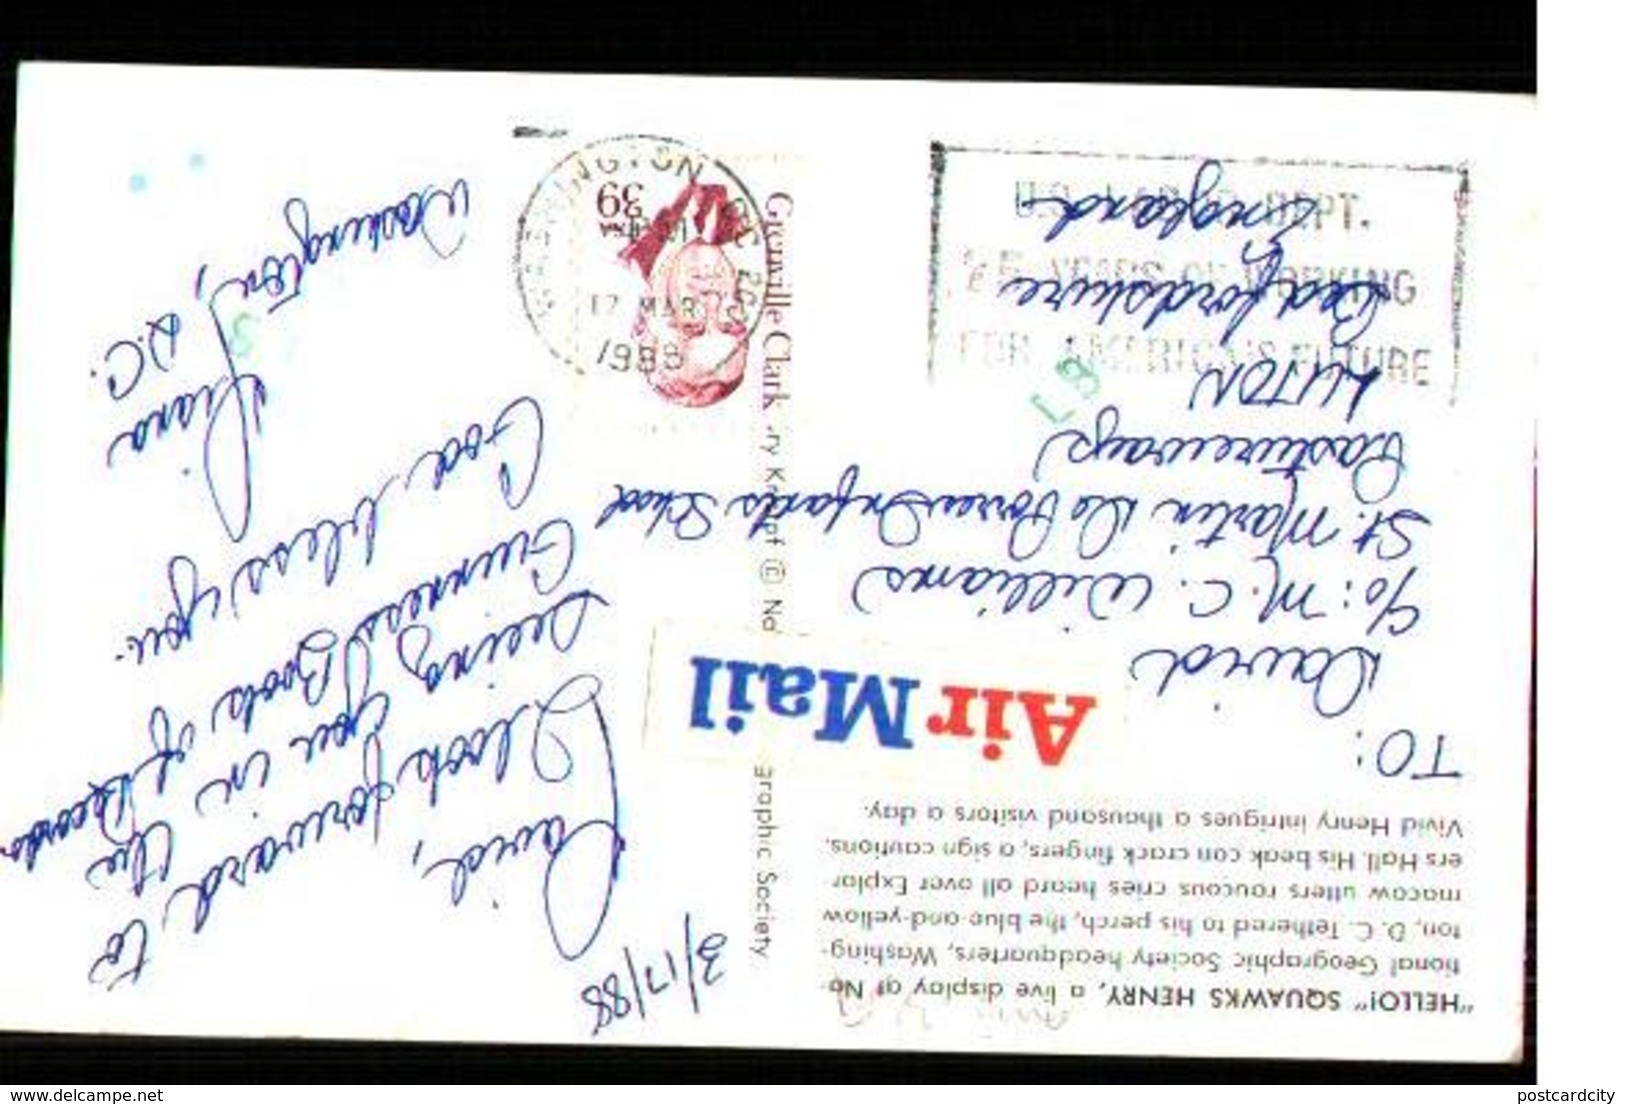 "HELLO!" SQUAWKS HENRY, a live display at Na-
tional Geographic Society headquarters, Washing-
ton, D. C. Tethered to his perch, the blue-and-yellow
macaw utters raucous cries heard all over Explor-
ers Hall. His beak can crack fingers, a sign cautions.
Vivid Henry intrigues a thousand visitors a day.
3/17/88
David,
I look forward to
seeing you in the
Guinness Book of Records
God bless you.
Diana
Washington,
D.C.
TO:
David
c/o: M. C. Williams
St. Martin De Porres Infants School
Pastureways
LUTON
Bedfordshire
England
Air Mail
ographic Society
© Na
Grenville Clark
39
USA
WASHINGTON DC 200
17 MAR
1988
U.S. LABOR DEPT.
75 YEARS OF WORKING
FOR AMERICA'S FUTURE
delcampe.net
postcardcity